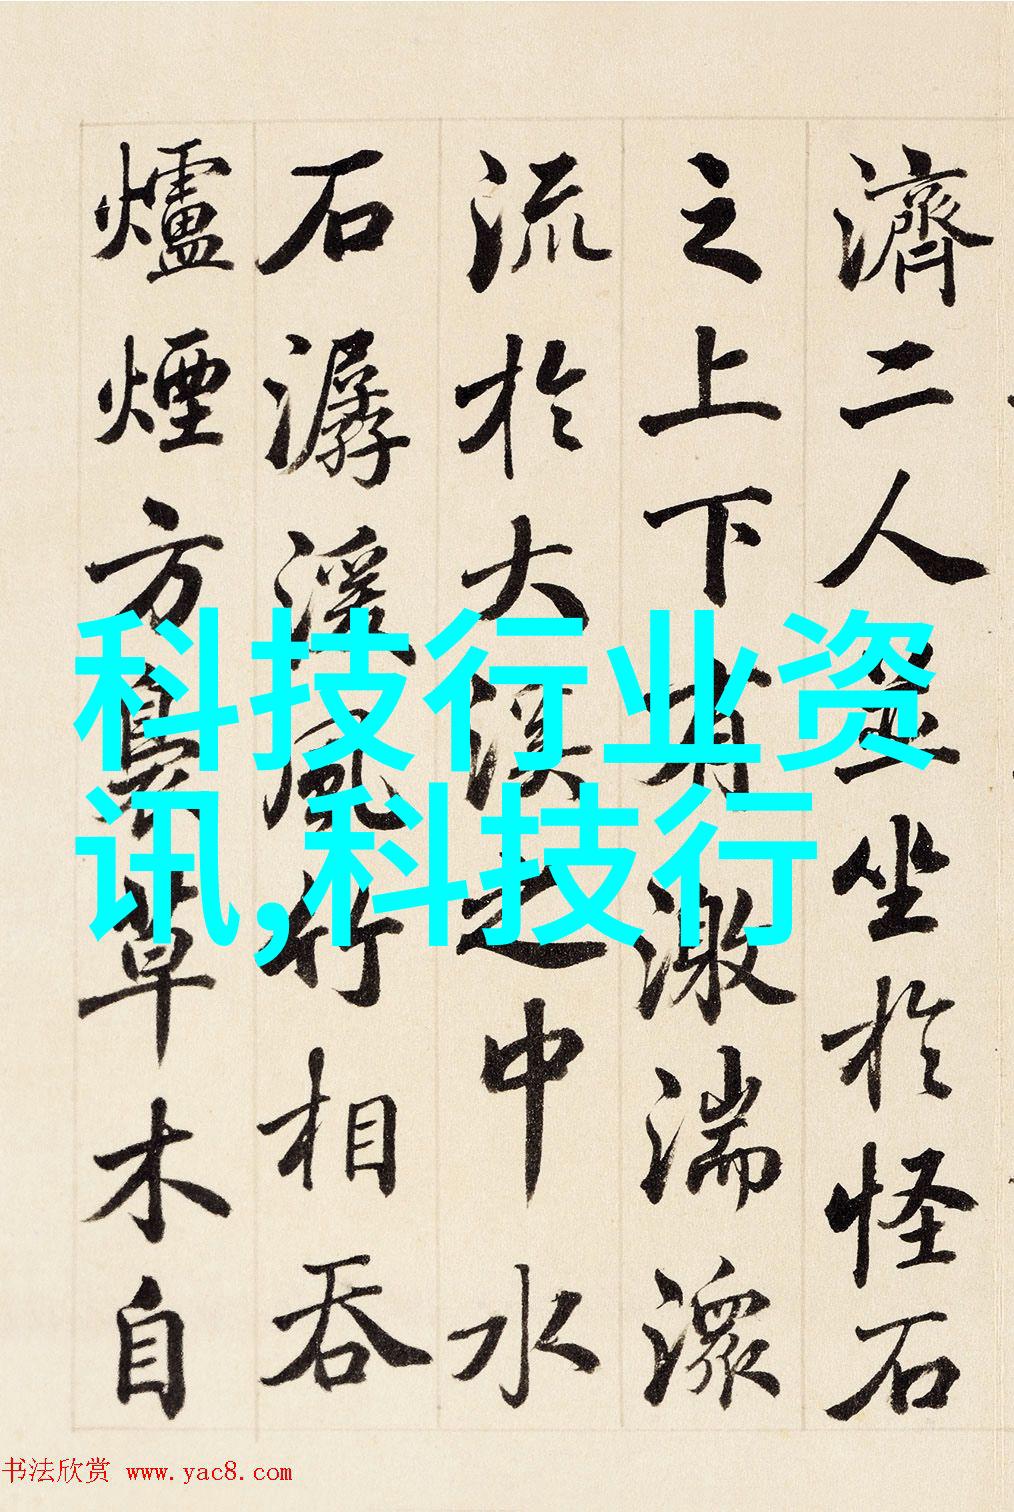 濟二人並坐於怪石
之上下有激湍潀
流於大溪之中水
石潺湲風竹相吞
爐煙方裊草木自
科技行业资
讯,科技行
书法欣赏 www.yac8.com